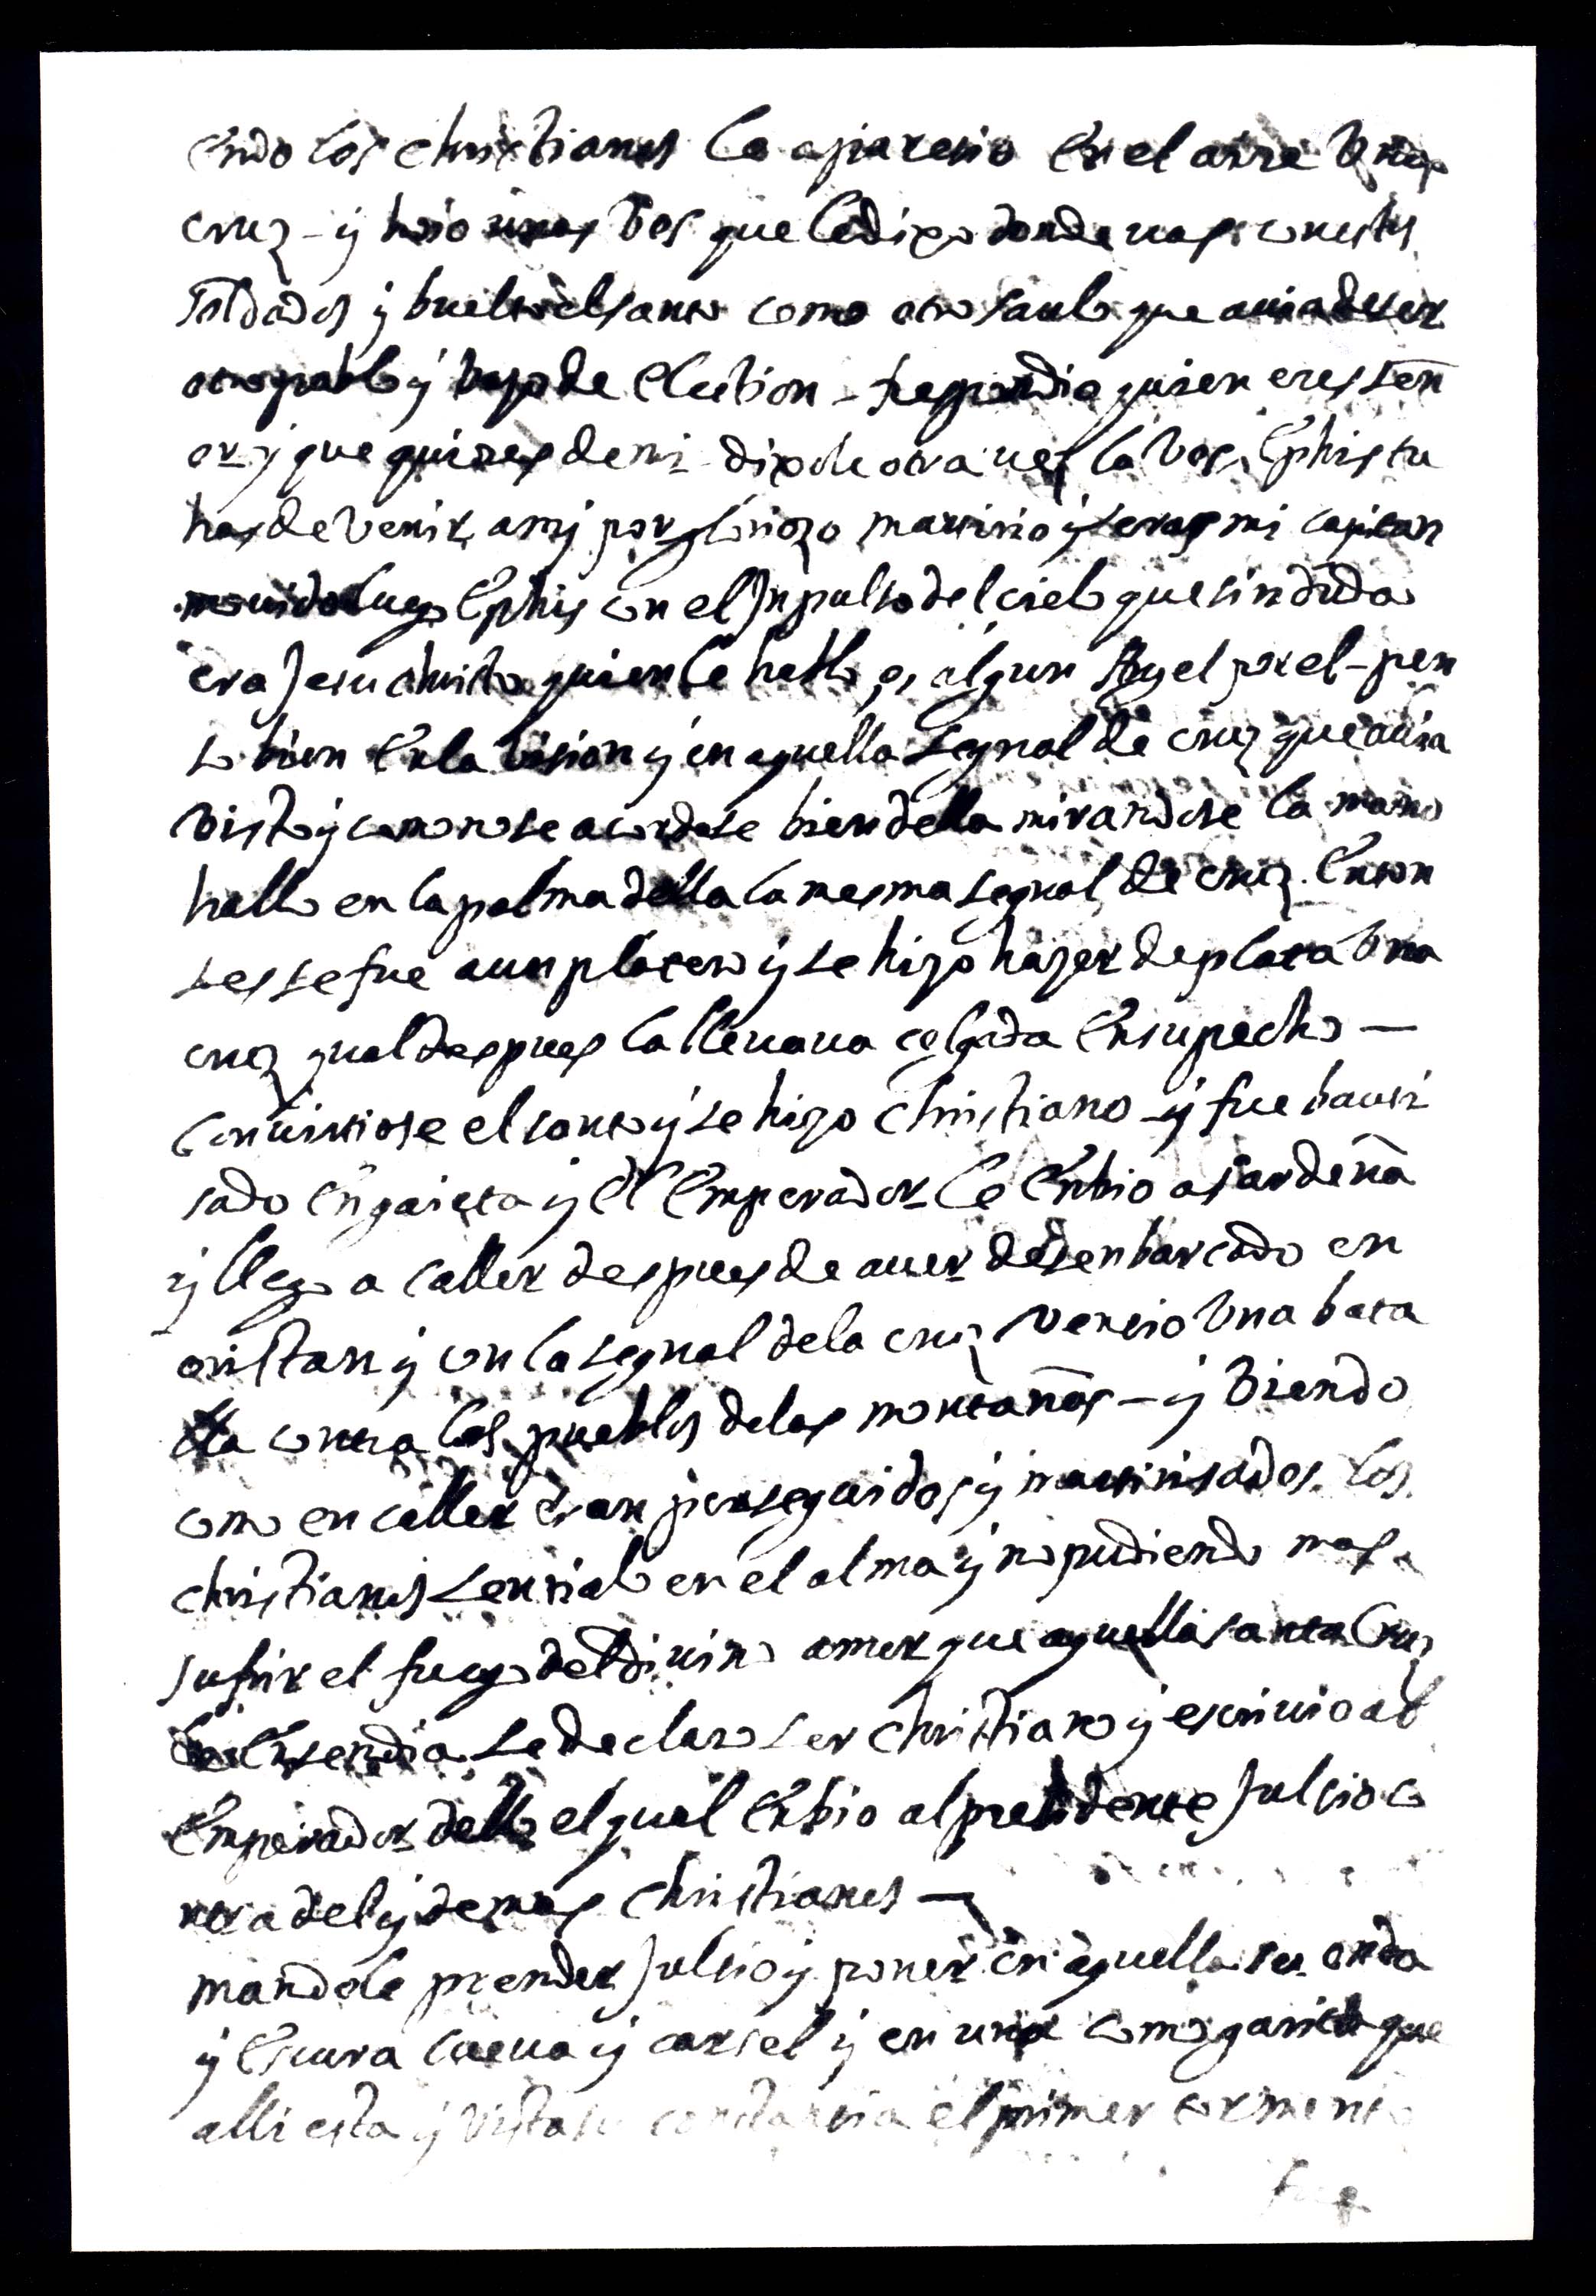 endo los christianos le aparesio en el aire Una
cruz - y hoio unas Vos que le dixo donde uas con estos
soldados y buelto el santo como otro saulo que auia de ser
otro pablo y baso de Election - Respondio quien eres señ
or y que quieres de mi - dixole otra ues la Vos, Ephis tu
has de Venir a my por glorioso martirio y seras mi capitan
mouido luego Ephis con el Inpulso del cielo que sin duda
era Jesu christo quien le hablo, o, algun Angel por el - pen
so bien En la Vision y en aquella segnal de cruz que auia
Visto y como no se acordase bien della mirandose la mano
hallo en la palma della la mesma segnal de cruz. Enton
ses se fue a un platero y se hizo hazer de plata Una
cruz qual despues la lleuaua colgada En su pecho —
Conuirtiose el santo y se hizo christiano - y fue bauti
sado En gaieta y El Emperador le Enbio a sardeña
y llego a caller despues de auer desenbarcado en
oristan y con la segnal de la cruz Vensio Una bata
lla contra los pueblos de las montañas - y Viendo
como en caller eran perseguidos y martirisados los
christianos sentialo en el alma y no pudiendo mas
sufrir el fuego del diuino amor que aquella santa Cruz
le Ensendia se declaro ser christiano y escriuio al
Emperador dello el qual Enbio al presidente Julsio co
ntra del y demas christianos —
mandole prender Julsio y poner en aquella su onda
y Escura cueua y carsel y en una como garita que
alli esta y Vista su constansia el primer tormento
fue